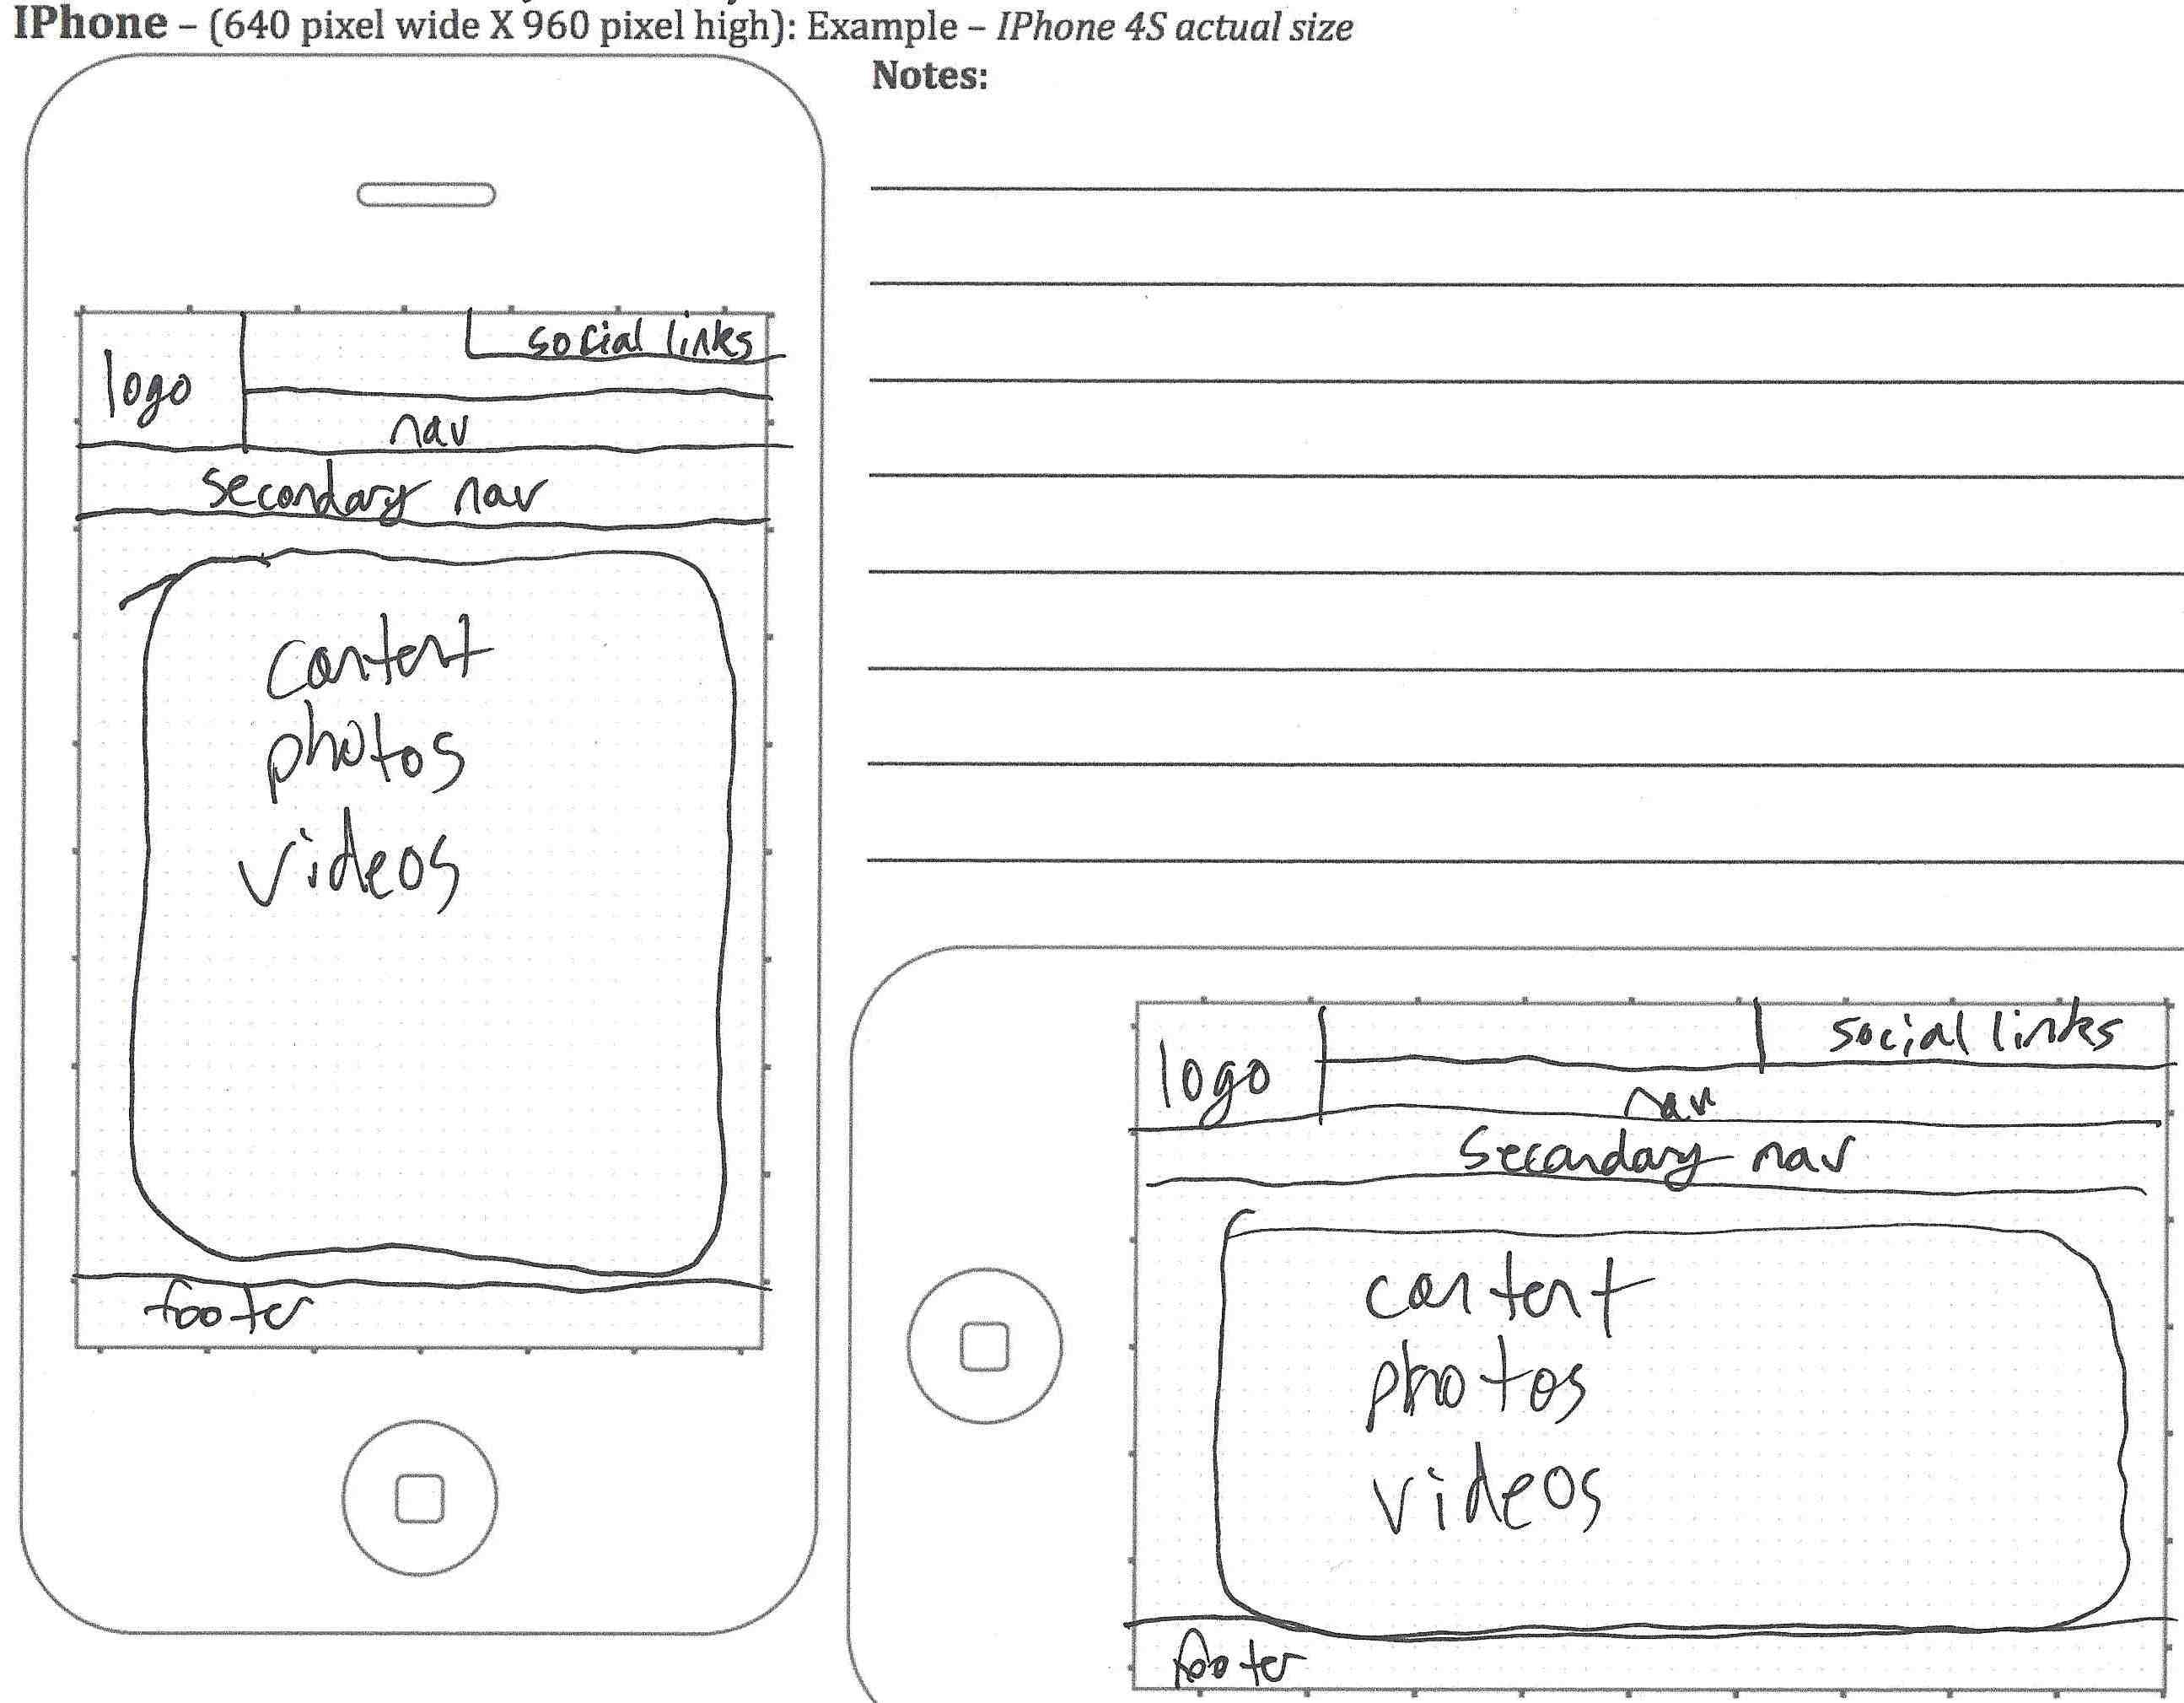 IPhone – (640 pixel wide X 960 pixel high): Example – IPhone 4S actual size
Notes:
social links
logo
nav
secondary nav
content
photos
videos
footer
social links
logo
nav
Secondary nav
content
photos
videos
footer